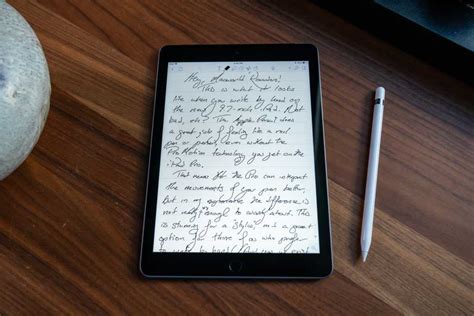 Hey, Macworld Readers!
This is what it looks
like when you write by hand on
the new 9.7-inch iPad. Not
bad, eh? The Apple Pencil does
a great job of feeling like a real
pen or pencil, even without the
ProMotion technology you get on the
iPad Pro.
That means the Pro can
the movements of your pen better,
but in my experience the difference is
not really enough to worry about. This
is stunning for a "stylus," and a great
option for those of us who prefer
to write by hand